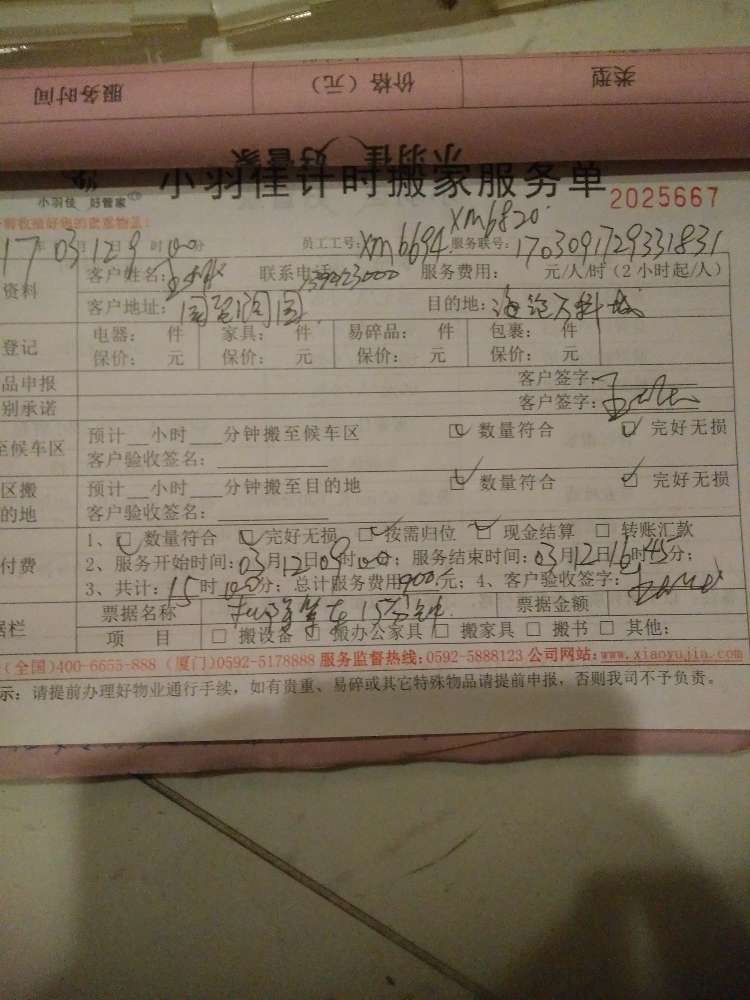 类型 价格（元） 服务时间
小羽佳 好管家
小羽佳计时搬家服务单 2025667
小羽佳 好管家
17年03月12日9时00分 员工工号：XM6694 XM6820 服务联号：1703091729331831
资料 客户姓名： 联系电话： 服务费用： 元/人/时（2小时起/人）
客户地址： 目的地：海沧万科城
登记 电器： 件 家具： 件 易碎品： 件 包裹： 件
保价： 元 保价： 元 保价： 元 保价： 元
品申报 客户签字：
别承诺 客户签字：
至候车区 预计__小时___分钟搬至候车区 数量符合 完好无损
客户验收签名：
区搬 预计__小时___分钟搬至目的地 数量符合 完好无损
的地 客户验收签名：
1、 数量符合 完好无损 按需归位 现金结算 转账汇款
付费 2、服务开始时间：03月12日09时00分；服务结束时间：03月12日16时45分；
3、共计：15时00分；总计服务费用900元；4、客户验收签字：
据栏 票据名称 15分钟 票据金额
项 目 搬设备 搬办公家具 搬家具 搬书 其他：
（全国）400-6655-888（厦门）0592-5178888 服务监督热线：0592-5888123 公司网站：www.xiaoyujia.com
示：请提前办理好物业通行手续，如有贵重、易碎或其它特殊物品请提前申报，否则我司不予负责。